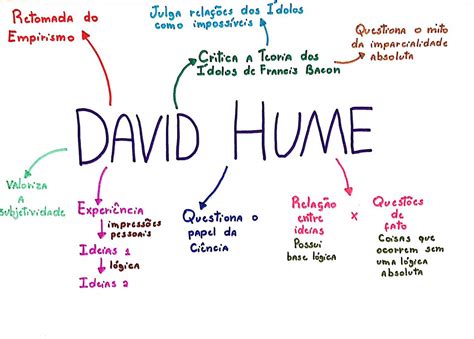 Retomada do
Empirismo
Julga relações dos Ídolos
como impossíveis
Questiona o mito
da imparcialidade
absoluta
Critica a Teoria dos
Ídolos de Francis Bacon
DAVID HUME
Valoriza
a
subjetividade
Experiência
impressões
pessoais
Ideias 1
lógica
Ideias 2
Questiona o
papel da
Ciência
Relação
entre
ideias
Possui
base lógica
x
Questões
de
fato
Coisas que
ocorrem sem
uma lógica
absoluta